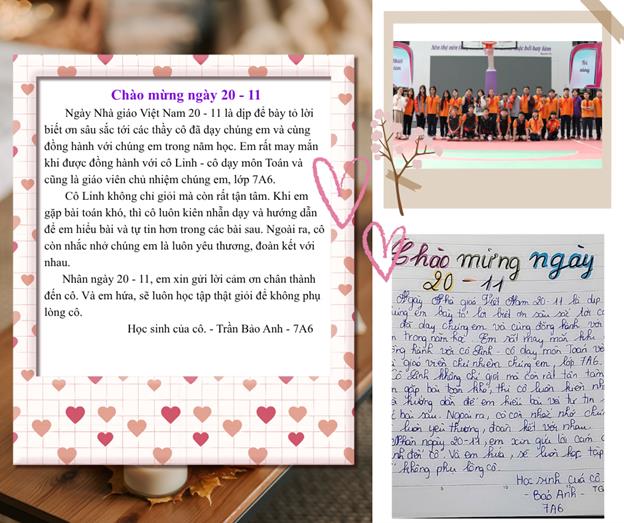 Chào mừng ngày 20 - 11
Ngày Nhà giáo Việt Nam 20 - 11 là dịp để bày tỏ lời
biết ơn sâu sắc tới các thầy cô đã dạy chúng em và cùng
đồng hành với chúng em trong năm học. Em rất may mắn
khi được đồng hành với cô Linh - cô dạy môn Toán và
cũng là giáo viên chủ nhiệm chúng em, lớp 7A6.
Cô Linh không chỉ giỏi mà còn rất tận tâm. Khi em
gặp bài toán khó, thì cô luôn kiên nhẫn dạy và hướng dẫn
để em hiểu bài và tự tin hơn trong các bài sau. Ngoài ra, cô
còn nhắc nhở chúng em là luôn yêu thương, đoàn kết với
nhau.
Nhân ngày 20 - 11, em xin gửi lời cảm ơn chân thành
đến cô. Và em hứa, sẽ luôn học tập thật giỏi để không phụ
lòng cô.
Học sinh của cô. - Trần Bảo Anh - 7A6
Chào mừng ngày
20 - 11
Ngày Nhà giáo Việt Nam 20-11 là dịp
bày tỏ lời biết ơn sâu sắc tới cá
đã dạy chúng em và cùng đồng hành với
trong năm học. Em rất may mắn khi
hành với cô Linh - cô dạy môn Toán và
giáo viên chủ nhiệm chúng em, lớp 7A6.
Cô Linh không chỉ giỏi mà còn rất tận tâm
gặp bài toán khó, thì cô luôn kiên nhẫ
hướng dẫn để em hiểu bài và tự tin
bài sau. Ngoài ra, cô còn nhắc nhở chú
luôn yêu thương, đoàn kết với nhau.
Nhân ngày 20-11, em xin gửi lời cảm ơ
đến cô. Và em hứa, sẽ luôn học tập
không phụ lòng cô.
Học sinh của cô
- Bảo Anh -
7A6